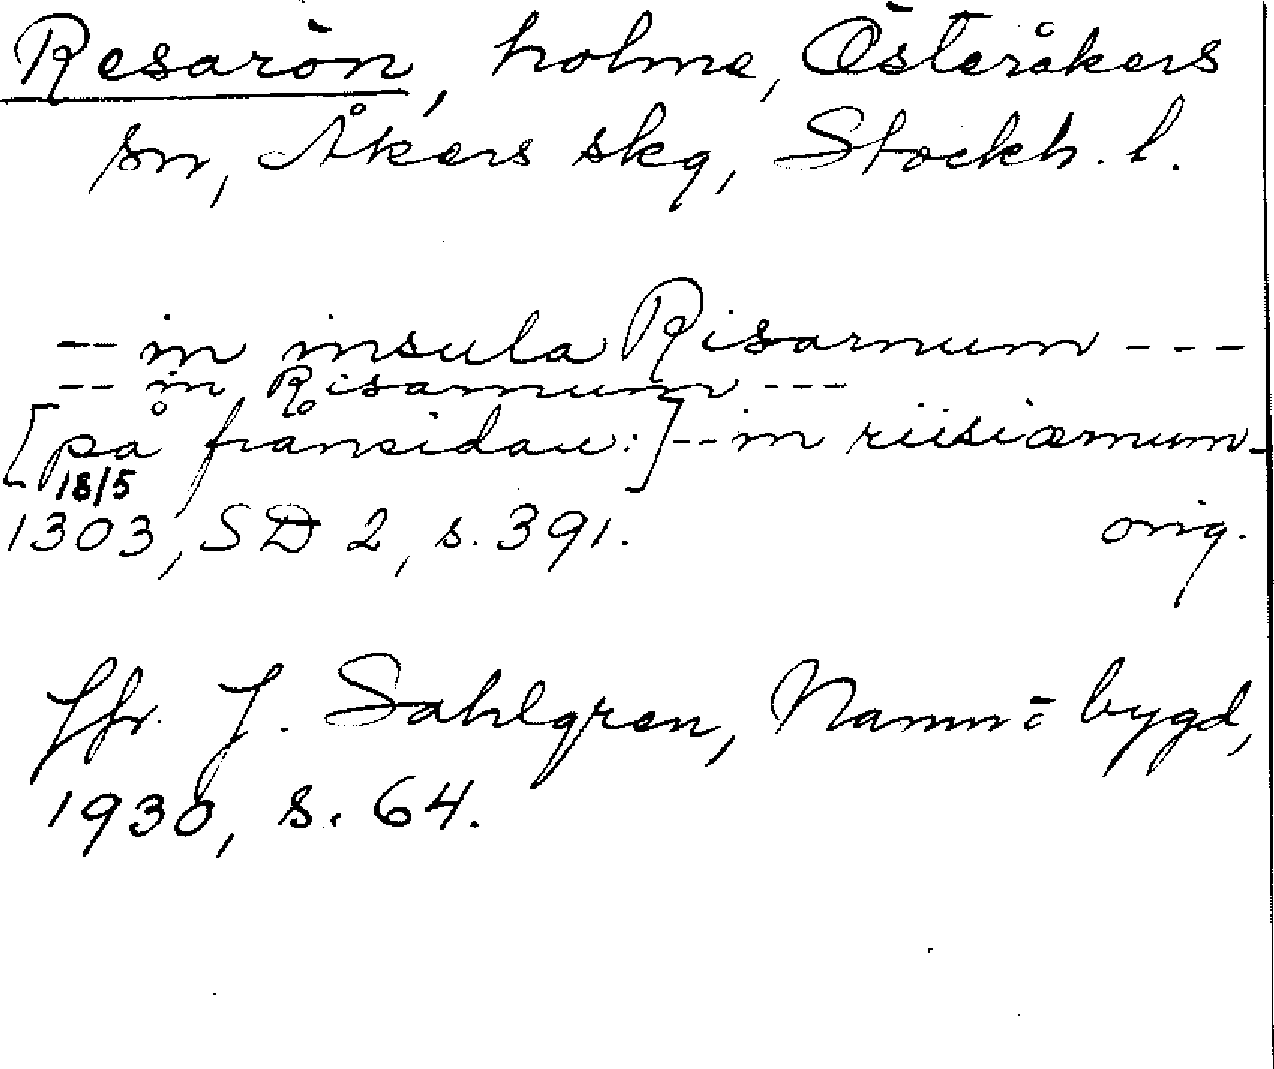 Resarön, holme, Österåkers
sn, Åkers skg, Stockh. l.
-- in insula Risarnum ---
-- in Risarnum ---
[på frånsidan:] -- in riisiærnum -
18/5
1303, SD 2, s. 391. orig.
Jfr. J. Sahlgren, Namn o bygd,
1930, s. 64.